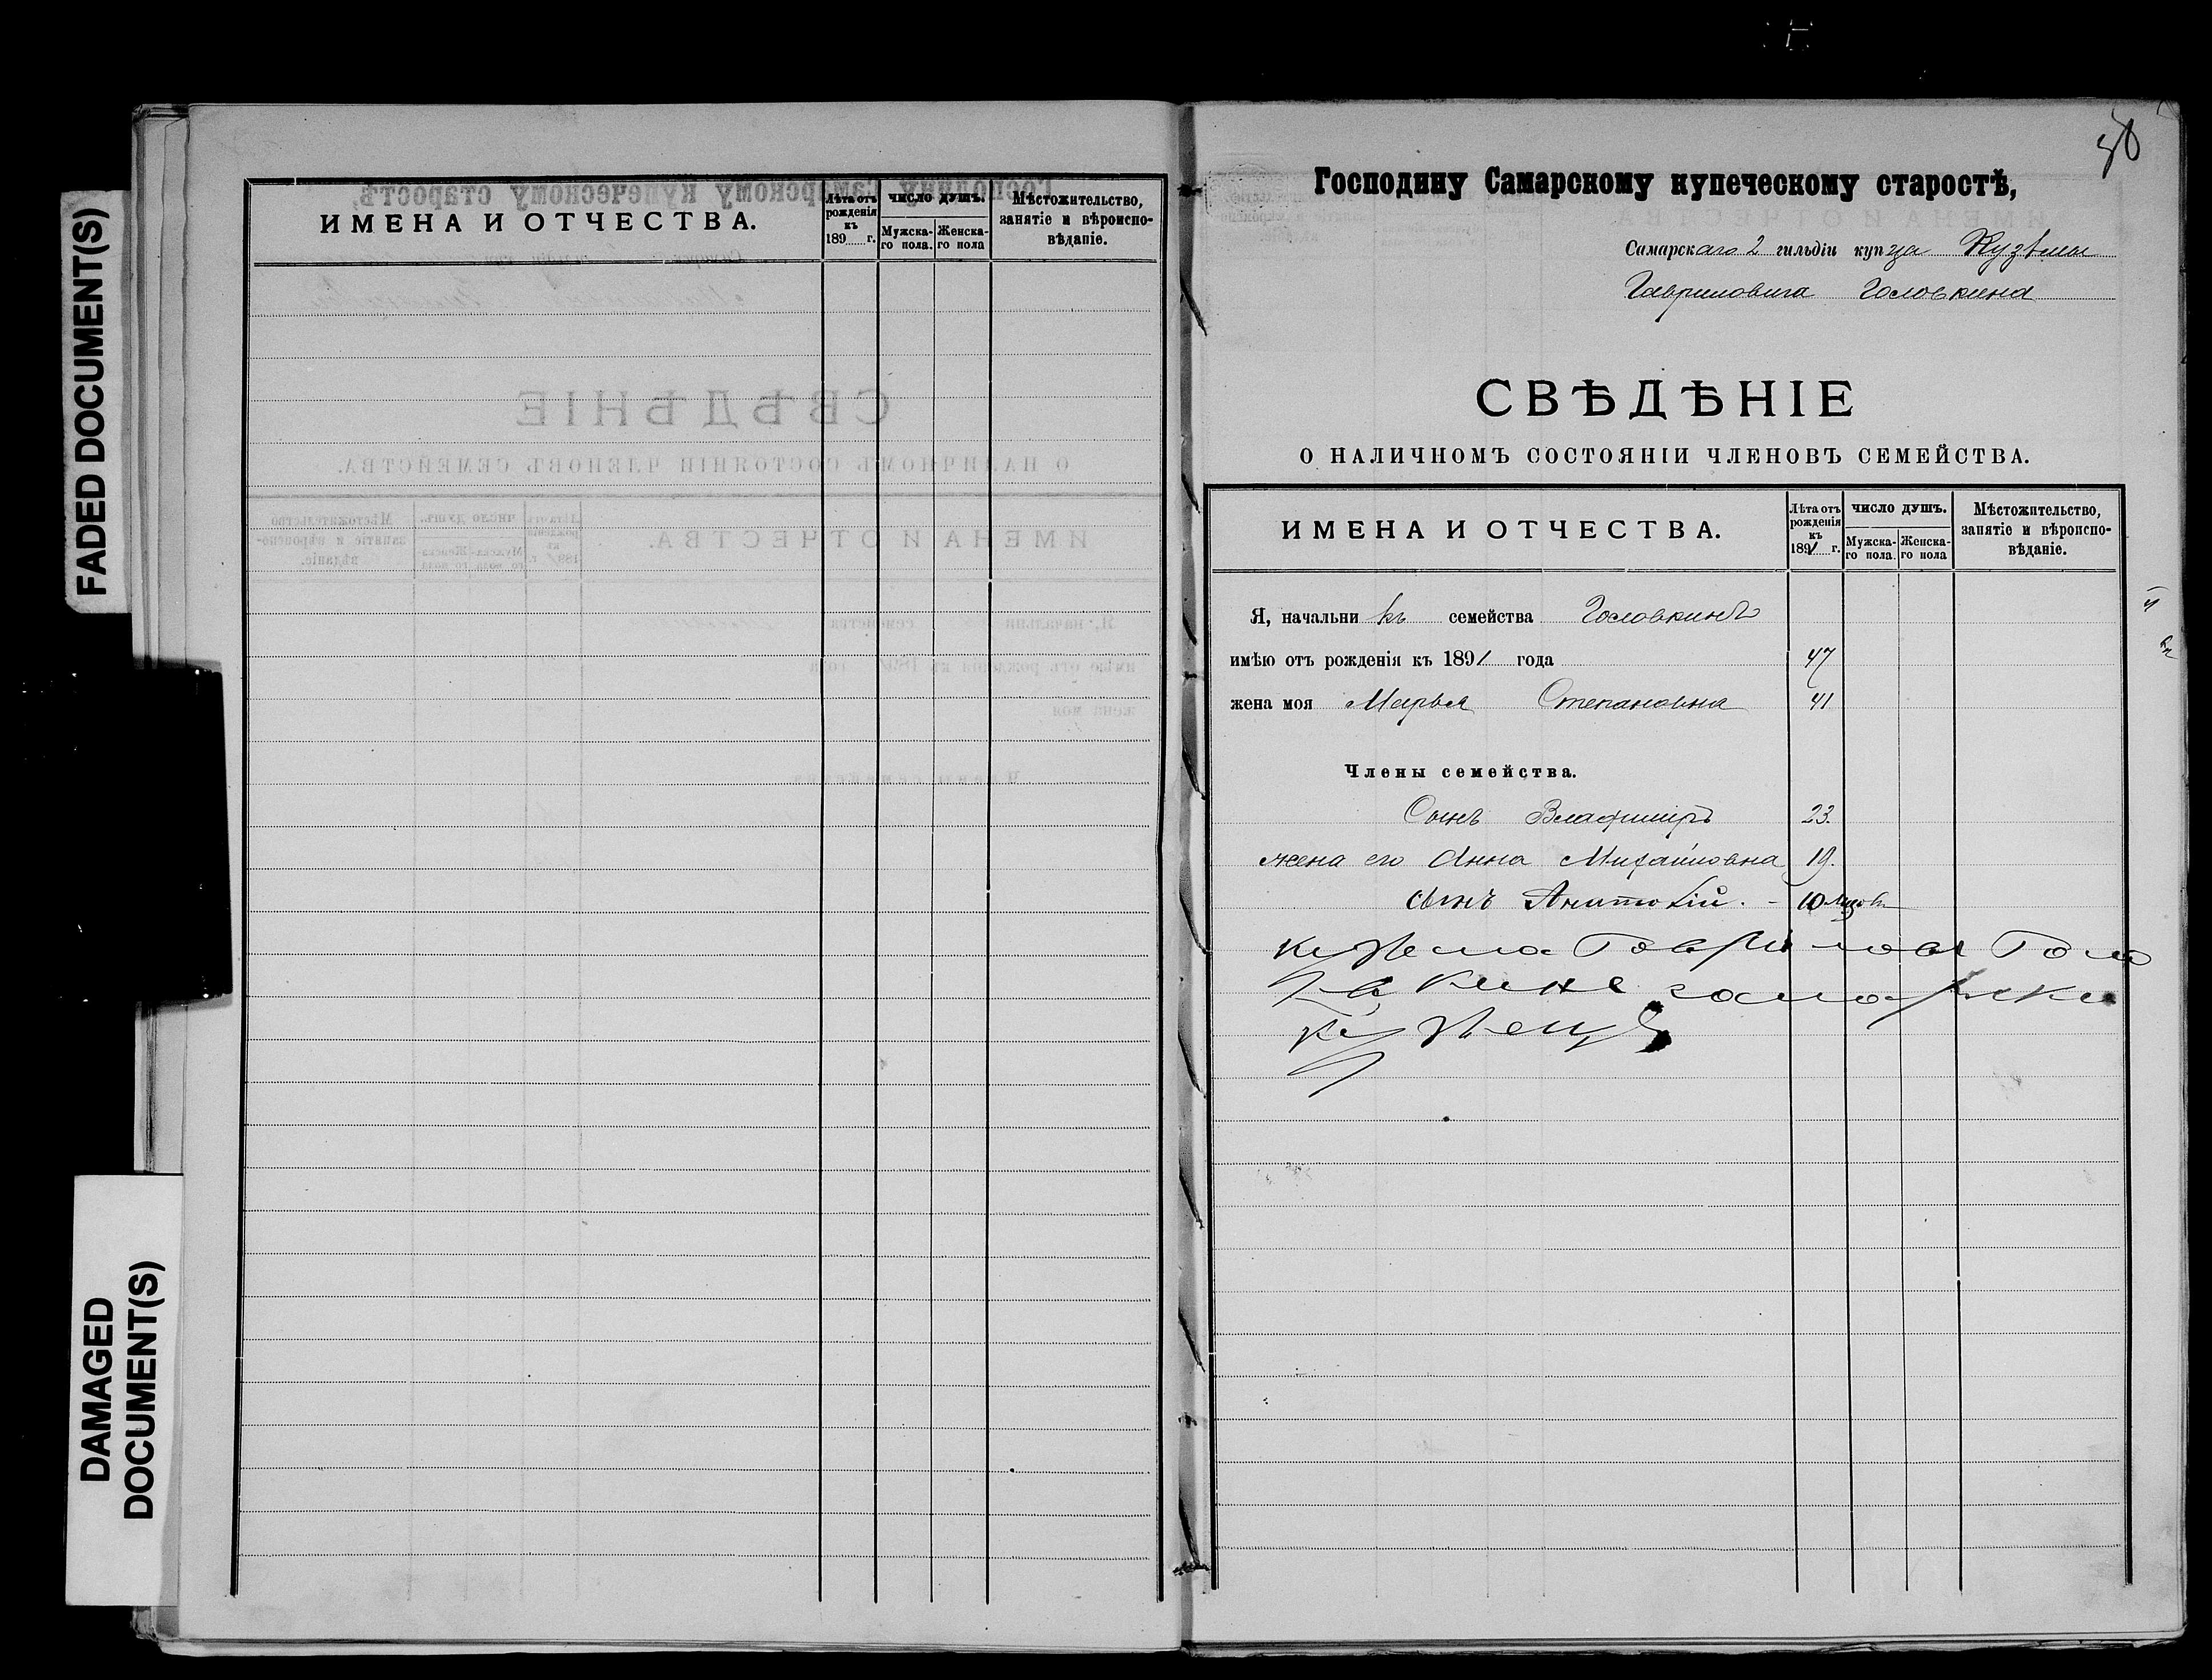 FADED DOCUMENT(S)
DAMAGED
DOCUMENT(S)
ИМЕНА И ОТЧЕСТВА.
Лѣта отъ рожденія къ 189 г.
ЧИСЛО ДУШЪ.
Мужска-го пола.
Женска-го пола
Мѣстожительство, занятіе и вѣроиспо-вѣданіе.
Господину Самарскому купеческому старостѣ,
Самарскаго 2 гильдіи купца Кузьмы
Гавриловича Головкина
СВѢДѢНІЕ
О НАЛИЧНОМЪ СОСТОЯНІИ ЧЛЕНОВЪ СЕМЕЙСТВА.
ИМЕНА И ОТЧЕСТВА.
Лѣта отъ рожденія къ 1891 г.
ЧИСЛО ДУШЪ.
Мужска-го пола.
Женска-го пола
Мѣстожительство, занятіе и вѣроиспо-вѣданіе.
Я, начальникъ семейства Головкинъ
имѣю отъ рожденія къ 1891 года 47
жена моя Марья Степановна 41
Члены семейства.
Сынъ Владиміръ 23.
жена его Анна Михайловна 19.
сынъ 10